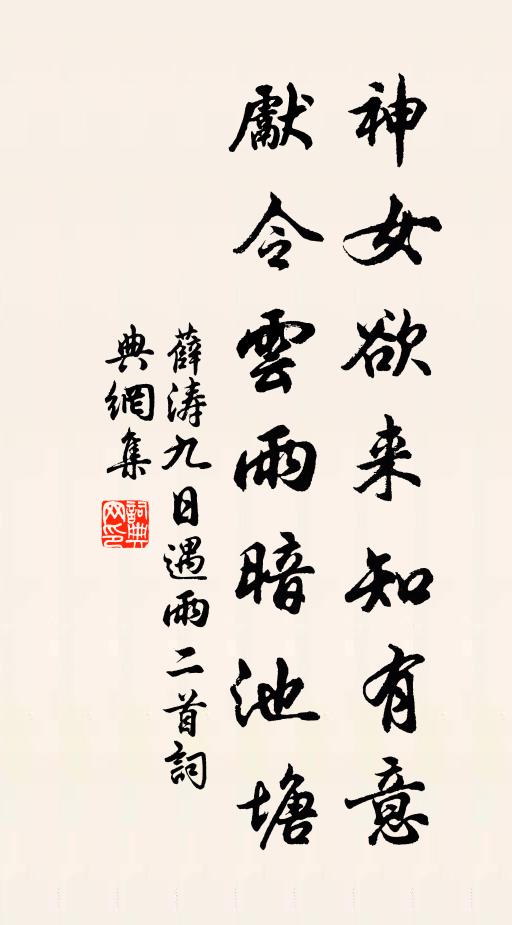 神女欲来知有意
獻令雲雨暗池塘
薛涛九日遇雨二首詞
典網集
詞典
网印